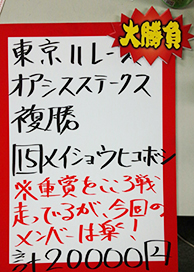 大勝負
東京11レース
オアシスステークス
複勝
15 メイショウヒコボシ
※重賞ところ戦
走っているが、今回の
メンバーは楽!
計20000円